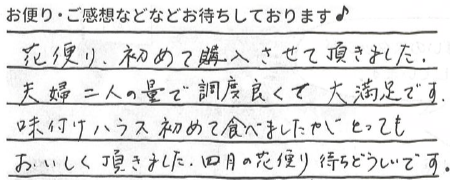 お便り・ご感想などなどお待ちしております♪
花便り、初めて購入させて頂きました.
夫婦二人の量で調度良くて大満足です.
味付けハラス初めて食べましたがとっても
おいしく頂きました.四月の花便り待ちどうしいです.